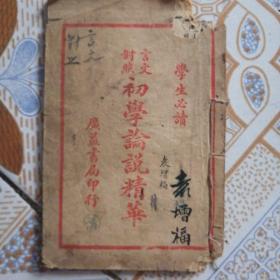 學生必讀
言文對照
初學論說精華
廣益書局印行
袁增福
袁增福
言文